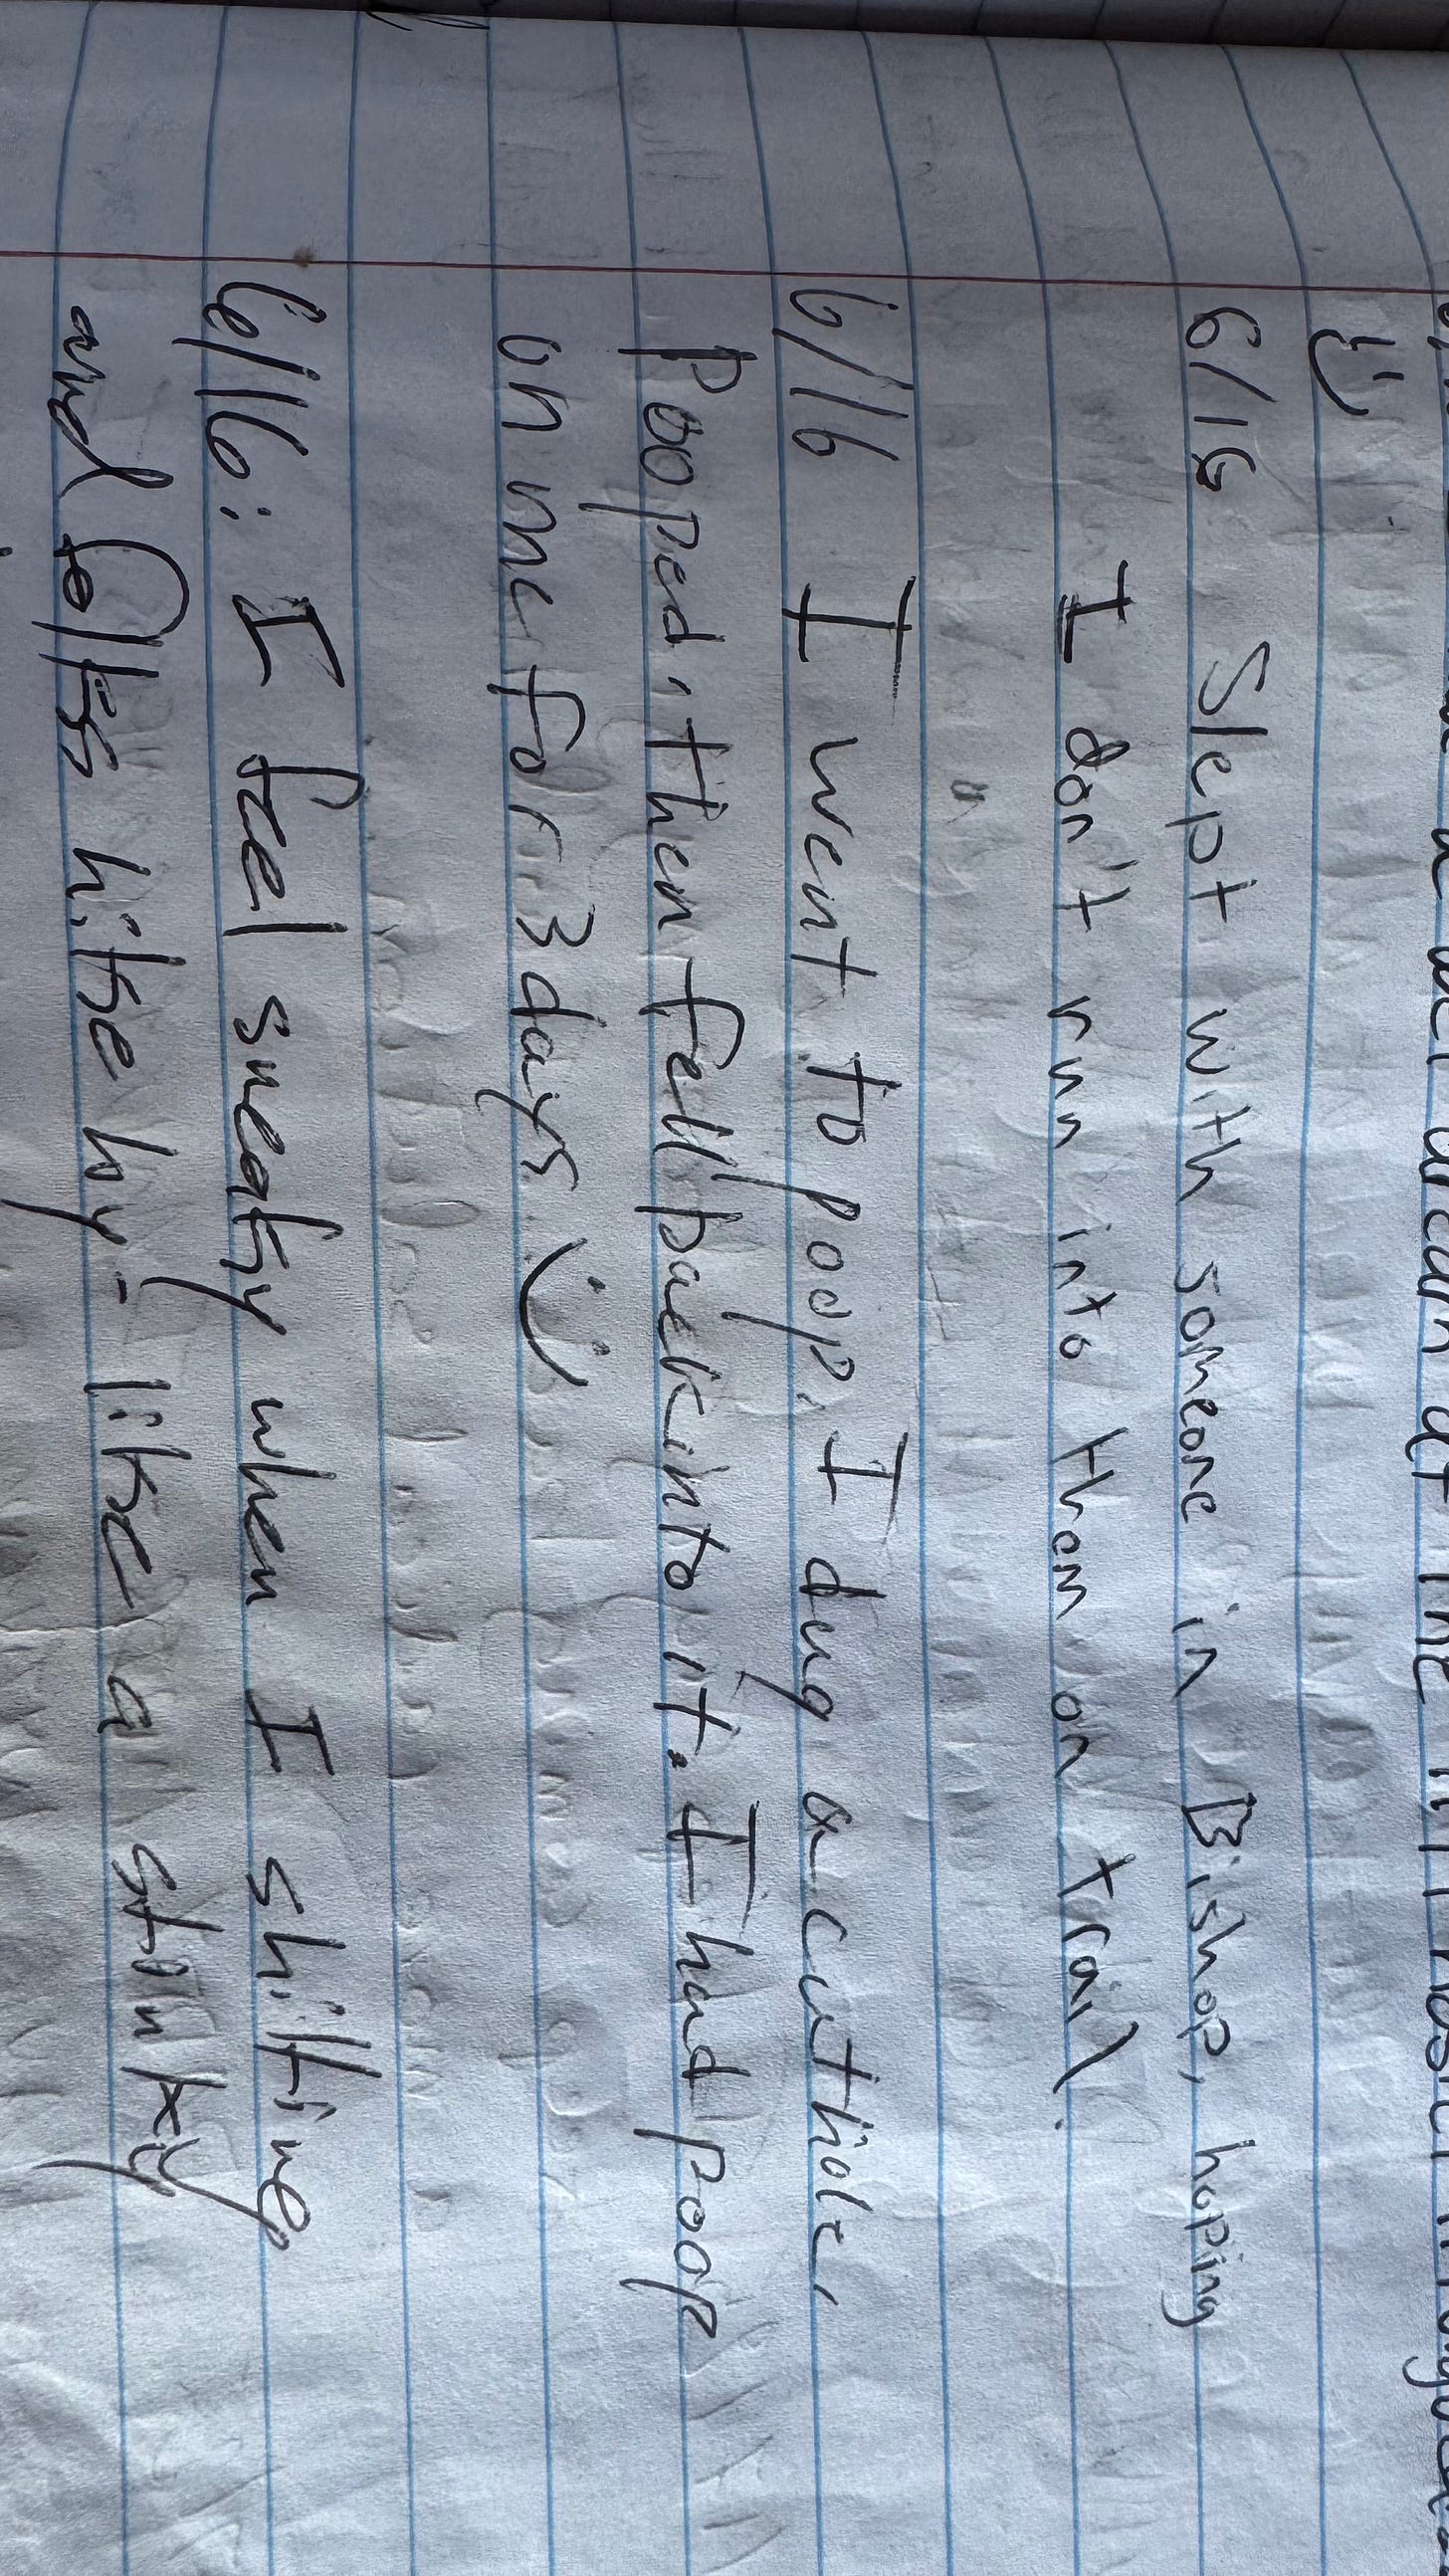 :)
6/16 Slept with someone in Bishop, hoping
I don't run into them on trail.
6/16 I went to poop, I dug a cathole,
Pooped, then fell back into it. I had poop
on me for 3 days :)
6/16: I feel sneaky when I shifting
and folks hike by - like a stinky